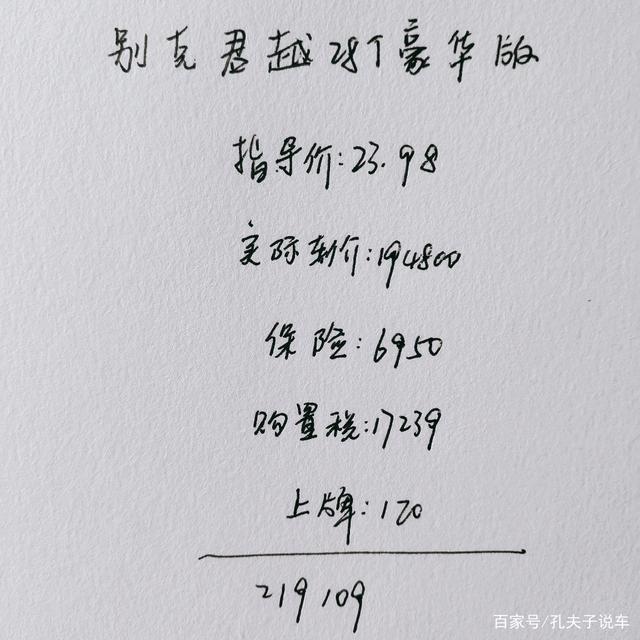 别克君越28T豪华版
指导价:23.98
实际车价:194800
保险:6950
购置税:17239
上牌:120
219109
百家号/孔夫子说车